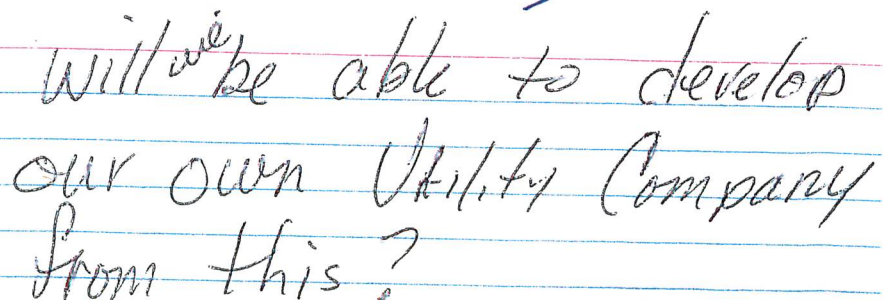 Will we be able to develop
our own Utility Company
from this?